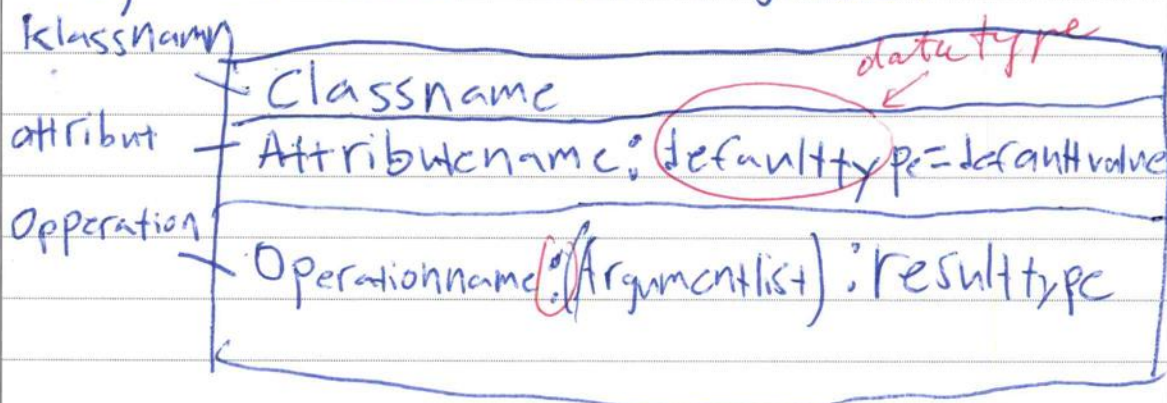 Klassnamn
data type
Classname
attribut
Attributename: defaulttype=defaultvalue
Opperation
Operationname:(Argumentlist):resulttype